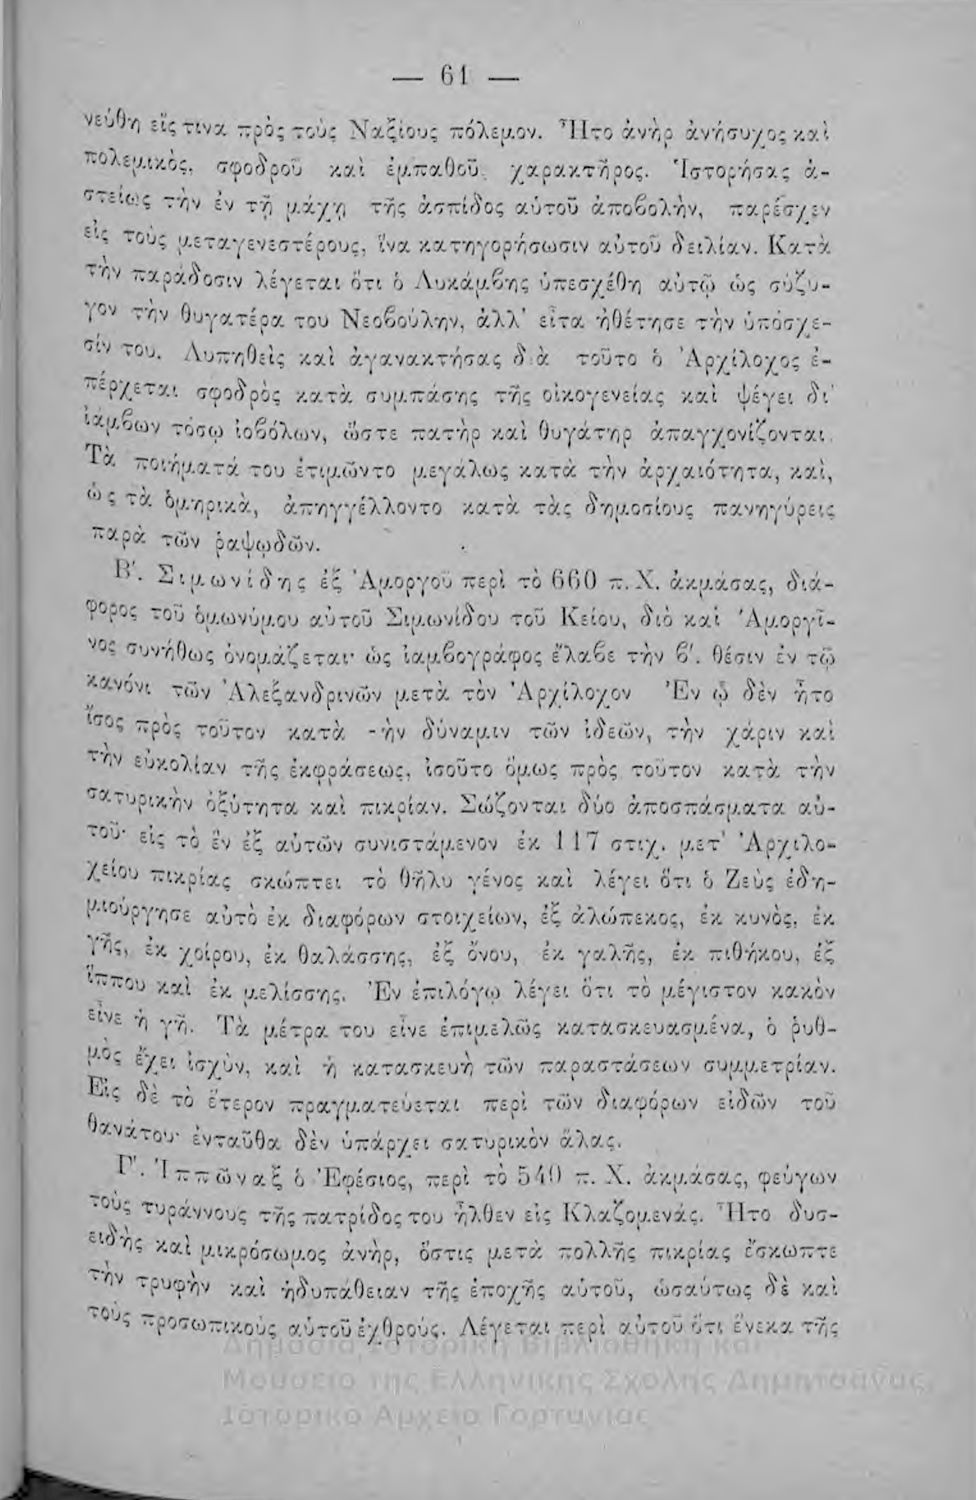 — 61 —
νεύθη εἴς τινα πρὸς τοὺς Ναξίους πόλεμον. Ἦτο ἀνὴρ ἀνήσυχος καὶ
πολεμικὸς, σφοδροῦ καὶ ἐμπαθοῦς χαρακτῆρος. Ἱστορήσας ἀ-
στείως τὴν ἐν τῇ μάχῃ τῆς ἀσπίδος αὐτοῦ ἀποβολὴν, παρέσχεν
εἰς τοὺς μεταγενεστέρους, ἵνα κατηγορήσωσιν αὐτοῦ δειλίαν. Κατὰ
τὴν παράδοσιν λέγεται ὅτι ὁ Λυκάμβης ὑπεσχέθη αὐτῷ ὡς σύζυ-
γον τὴν θυγατέρα του Νεοβούλην, ἀλλ' εἶτα ἠθέτησε τὴν ὑπόσχε-
σίν του. Λυπηθεὶς καὶ ἀγανακτήσας διὰ τοῦτο ὁ Ἀρχίλοχος ἐ-
πέρχεται σφοδρὸς κατὰ συμπάσης τῆς οἰκογενείας καὶ ψέγει δι'
ἰάμβων τόσῳ ἰοβόλων, ὥστε πατὴρ καὶ θυγάτηρ ἀπαγχονίζονται.
Τὰ ποιήματά του ἐτιμῶντο μεγάλως κατὰ τὴν ἀρχαιότητα, καὶ,
ὡς τὰ ὁμηρικὰ, ἀπηγγέλλοντο κατὰ τὰς δημοσίους πανηγύρεις
παρὰ τῶν ῥαψῳδῶν.
Β'. Σιμωνίδης ἐξ Ἀμοργοῦ περὶ τὸ 660 π.Χ. ἀκμάσας, διά-
φορος τοῦ ὁμωνύμου αὐτοῦ Σιμωνίδου τοῦ Κείου, διὸ καὶ Ἀμοργῖ-
νος συνήθως ὀνομάζεται· ὡς ἰαμβογράφος ἔλαβε τὴν β'. θέσιν ἐν τῷ
κανόνι τῶν Ἀλεξανδρινῶν μετὰ τὸν Ἀρχίλοχον Ἐν ᾧ δὲν ἦτο
ἴσος πρὸς τοῦτον κατὰ -ὴν δύναμιν τῶν ἰδεῶν, τὴν χάριν καὶ
τὴν εὐκολίαν τῆς ἐκφράσεως, ἰσοῦτο ὅμως πρὸς τοῦτον κατὰ τὴν
σατυρικὴν ὀξύτητα καὶ πικρίαν. Σώζονται δύο ἀποσπάσματα αὐ-
τοῦ· εἰς τὸ ἓν ἐξ αὐτῶν συνιστάμενον ἐκ 117 στιχ. μετ' Ἀρχιλο-
χείου πικρίας σκώπτει τὸ θῆλυ γένος καὶ λέγει ὅτι ὁ Ζεὺς ἐδη-
μιούργησε αὐτὸ ἐκ διαφόρων στοιχείων, ἐξ ἀλώπεκος, ἐκ κυνὸς, ἐκ
γῆς, ἐκ χοίρου, ἐκ θαλάσσης, ἐξ ὄνου, ἐκ γαλῆς, ἐκ πιθήκου, ἐξ
ἵππου καὶ ἐκ μελίσσης. Ἐν ἐπιλόγῳ λέγει ὅτι τὸ μέγιστον κακὸν
εἶνε ἡ γῆ. Τὰ μέτρα του εἶνε ἐπιμελῶς κατασκευασμένα, ὁ ῥυθ-
μὸς ἔχει ἰσχὺν, καὶ ἡ κατασκευὴ τῶν παραστάσεων συμμετρίαν.
Εἰς δὲ τὸ ἕτερον πραγματεύεται περὶ τῶν διαφόρων εἰδῶν τοῦ
θανάτου· ἐνταῦθα δὲν ὑπάρχει σατυρικὸν ἅλας.
Γ'. Ἱππῶναξ ὁ Ἐφέσιος, περὶ τὸ 540 π. Χ. ἀκμάσας, φεύγων
τοὺς τυράννους τῆς πατρίδος του ἦλθεν εἰς Κλαζομενάς. Ἦτο δυσ-
ειδὴς καὶ μικρόσωμος ἀνὴρ, ὅστις μετὰ πολλῆς πικρίας ἔσκωπτε
τὴν τρυφὴν καὶ ἡδυπάθειαν τῆς ἐποχῆς αὐτοῦ, ὡσαύτως δὲ καὶ
τοὺς προσωπικοὺς αὐτοῦ ἐχθρούς. Λέγεται περὶ αὐτοῦ ὅτι ἕνεκα τῆς
Δημόσια Ιστορική Βιβλιοθήκη και
Μουσείο της Ελληνικής Σχολής Δημητσάνας,
Ιστορικό Αρχείο Γορτυνίας